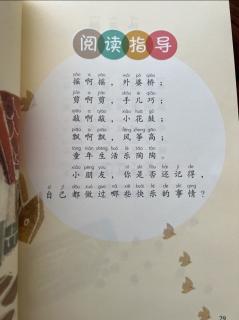 阅读指导
yáo a yáo wài pó qiáo
摇啊摇，外婆桥；
jiǎn a jiǎn shǒu ér qiǎo
剪啊剪，手儿巧；
qiāo a qiāo xiǎo huā gǔ
敲啊敲，小花鼓；
piāo a piāo fēng zheng gāo
飘啊飘，风筝高；
tóng nián shēng huó lè táo táo
童年生活乐陶陶。
xiǎo péng yǒu nǐ shì fǒu hái jì de
小朋友，你是否还记得，
zì jǐ dōu zuò guò nǎ xiē kuài lè de shì qing
自己都做过哪些快乐的事情？
79